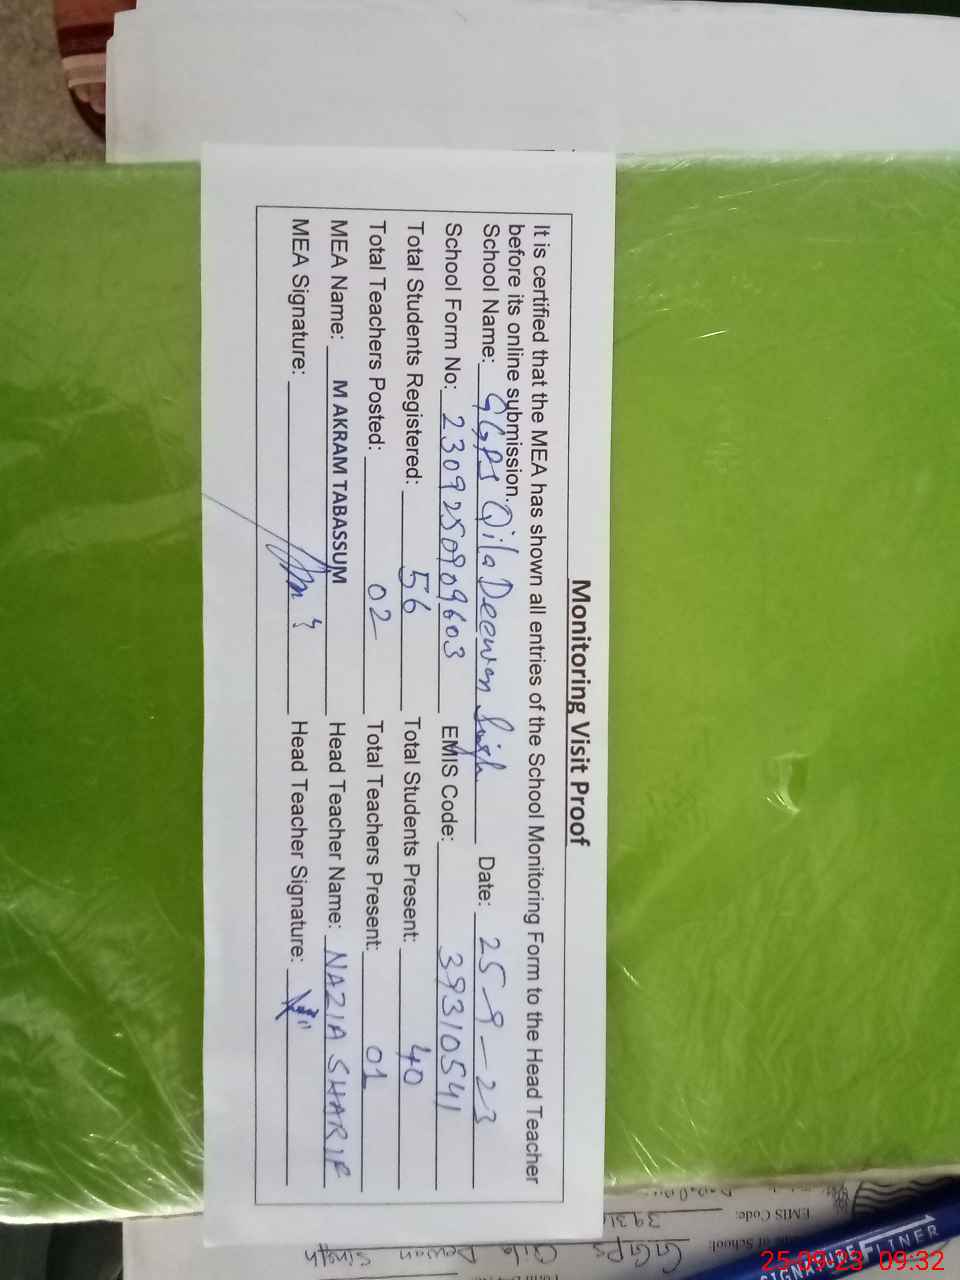 Monitoring Visit Proof
It is certified that the MEA has shown all entries of the School Monitoring Form to the Head Teacher
before its online submission.
School Name: GGPS Qila Deewan Singh Date: 25-9-23
School Form No: 2309250909603 EMIS Code: 39310541
Total Students Registered: 56 Total Students Present: 40
Total Teachers Posted: 02 Total Teachers Present: 01
MEA Name: M AKRAM TABASSUM Head Teacher Name: NAZIA SHARIF
MEA Signature: Head Teacher Signature:
EMIS Code: 3931
of School: GGPS Qila Dewan Singh
SIGNATURE FLINER
25-09-23 09:32